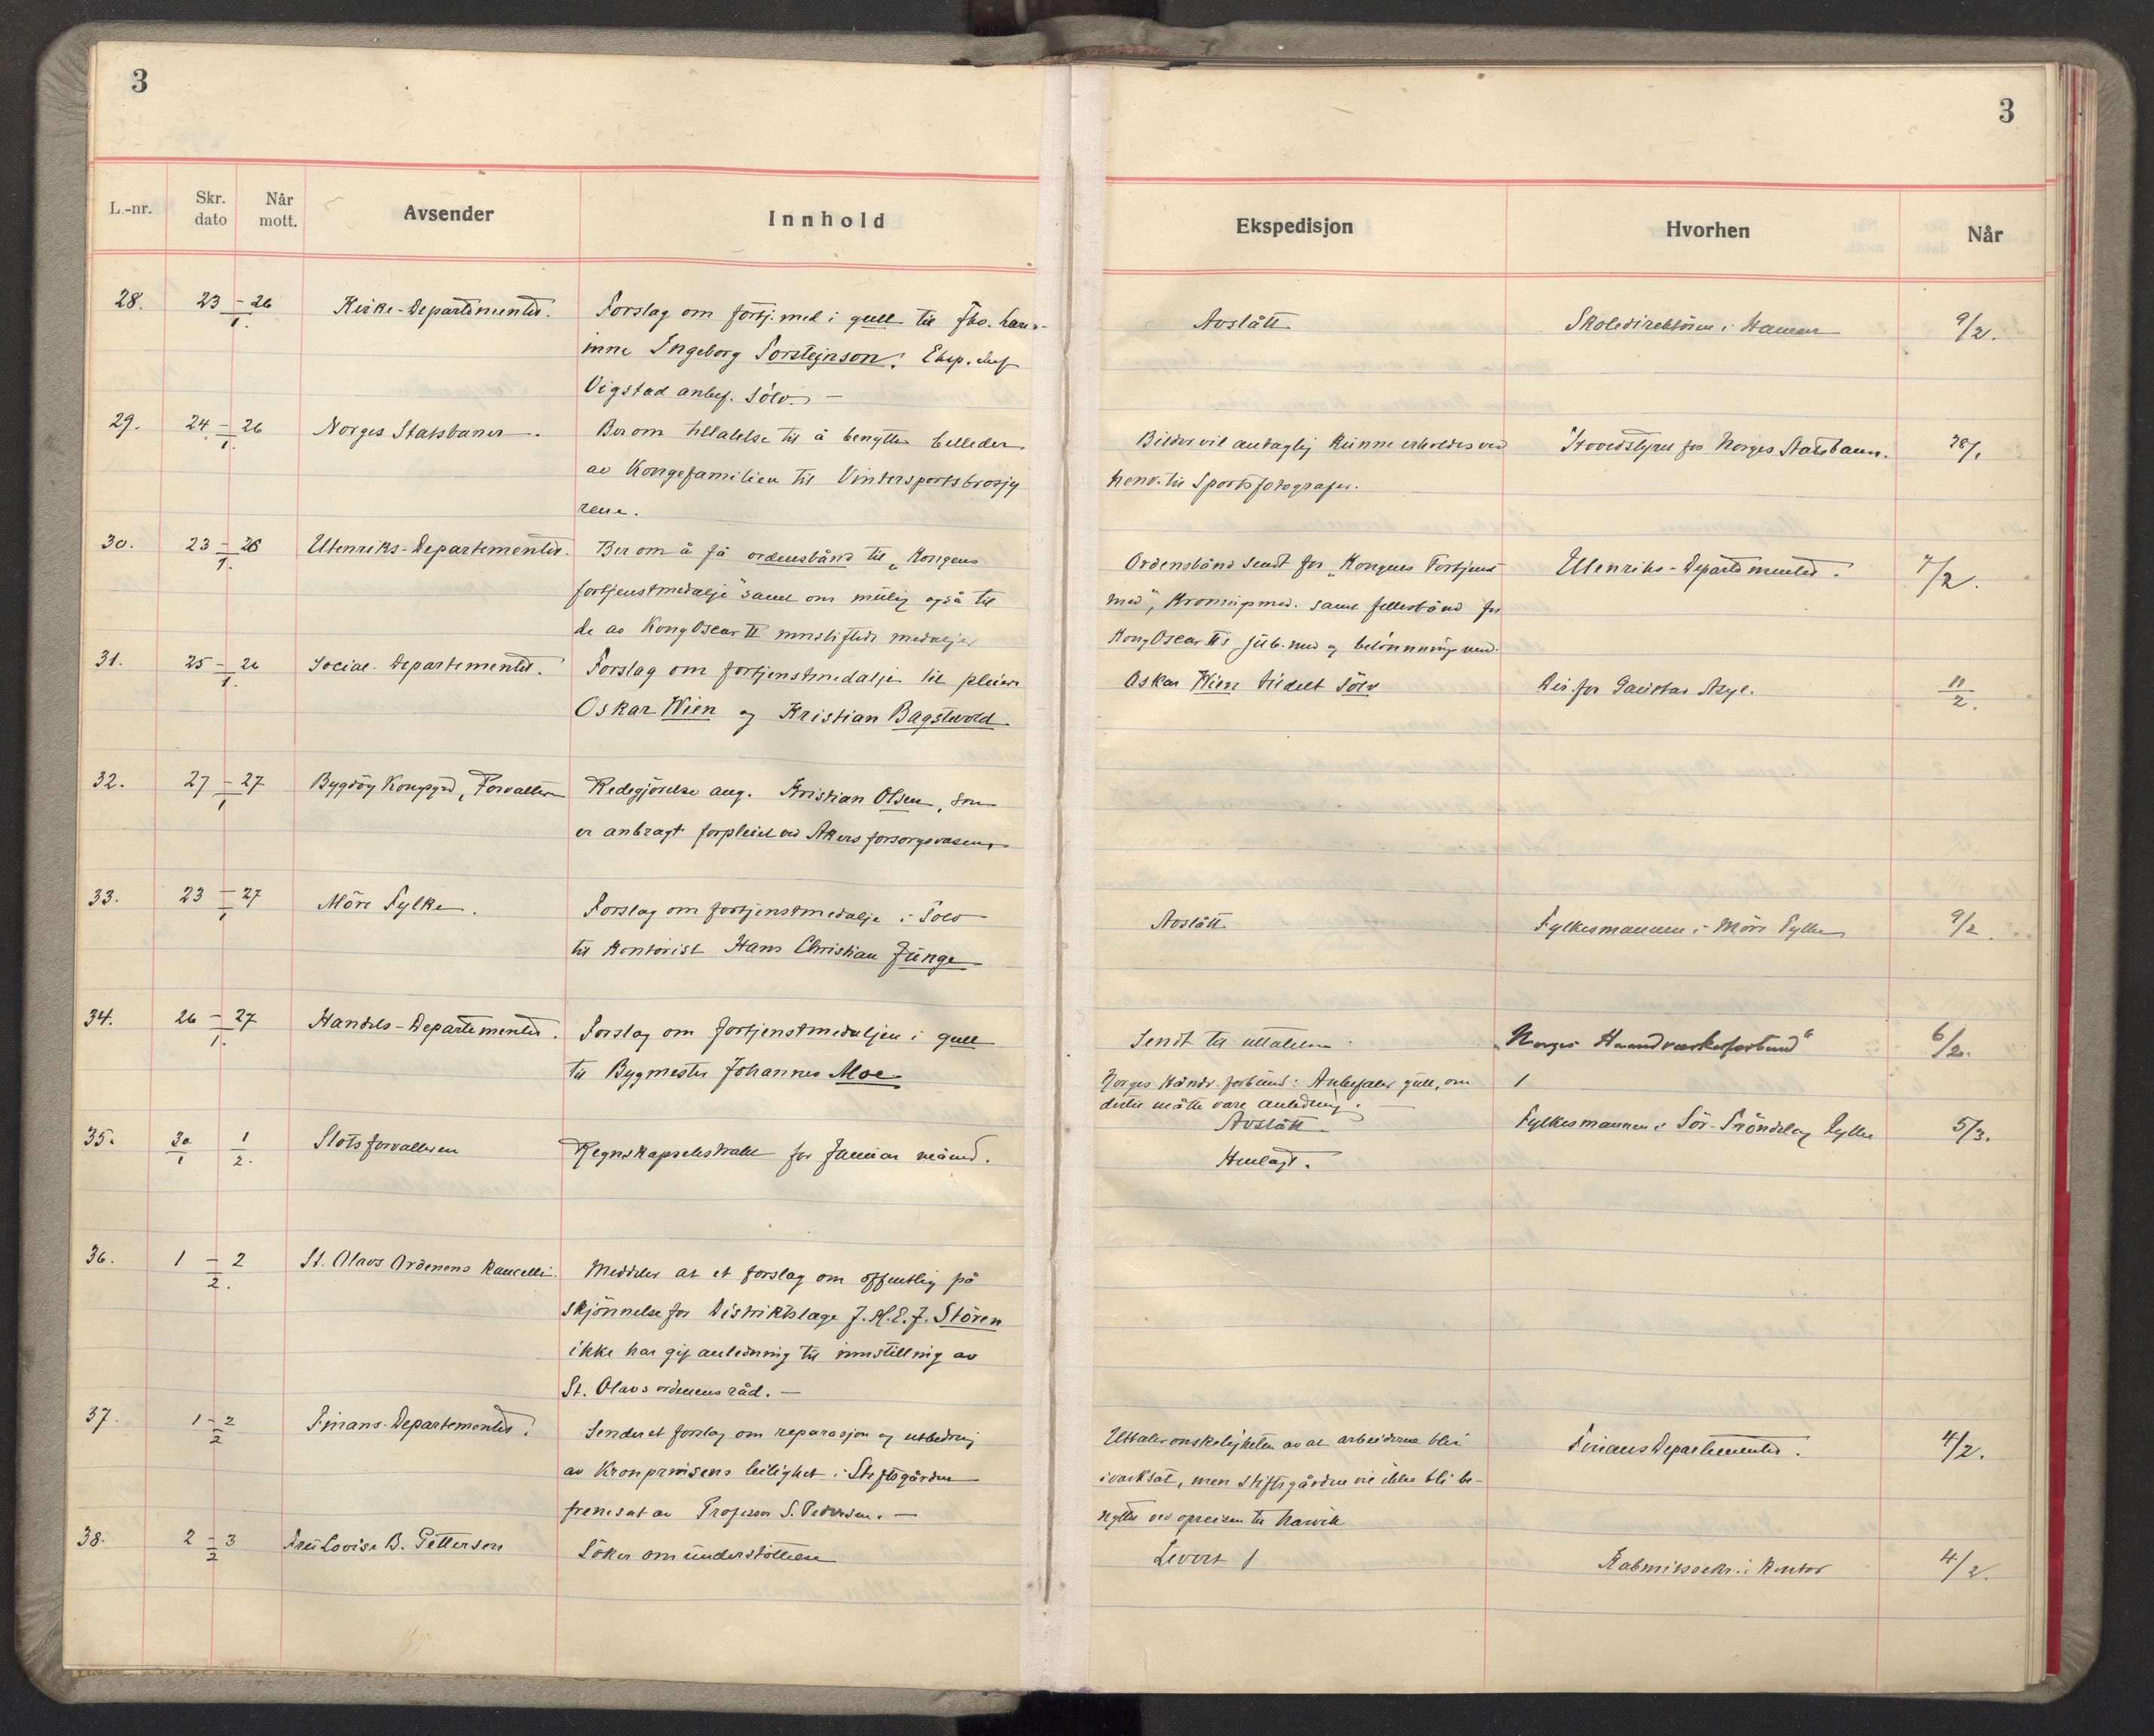 3
L.-nr. Skr. dato Når mott. Avsender Innhold
28. 23 – 26 / 1. Kirke-Departementet. Forslag om fortj.med i gull til fhv.
inne Ingeborg Torsteinson. Eksp.chef
Vigstad anbef. sölv. –
29. 24 – 26 / 1. Norges Statsbaner. Ber om tillatelse til å benytte billeder
av Kongefamilien til Vintersportsbrosjy
rene.
30. 23 – 26 / 1. Utenriks-Departementet. Ber om å få ordensbånd til „Kongens
fortjenstmedalje" samt om mulig også til
de av Kong Oscar II innstiftede medaljer
31. 25 – 26 / 1. Social-Departementet. Forslag om fortjenstmedalje til pleier
Oskar Wien og Kristian Bagstevold
32. 27 – 27 / 1 Bygdöy Kongsgrd, Forvalteren Redegjörelse ang. Kristian Olsen, som
er anbragt forpleiet ved Akers forsorgsvesen.
33. 23 – 27 / 1 Möre Fylke. Forslag om fortjenstmedalje i Sölv
til Kontorist Hans Christian Junge
34. 26 – 27 / 1. Handels-Departementet. Forslag om fortjenstmedaljen i gull
til Bygmester Johannes Moe
35. 30/1 1/2. Slotsforvalteren Regnskapsekstrakt for Januar måned.
36. 1 – 2 / 2. St. Olavs Ordenens Kancelli. Meddeler at et forslag om offentlig på
skjönnelse for Distriktslæge J.H.E.J. Stören
ikke har git anledning til innstilling av
St. Olavs ordenens råd. –
37. 1 – 2 / 2 Finans-Departementet. Sender et forslag om reparasjon og utbedring
av Kronprinsens leilighet i Stiftsgården
fremsat av Professor S. Pedersen. –
38. 2 – 3 / 2 Fru Lovise B. Petterson Söker om understöttelse
3
Ekspedisjon Hvorhen Når
Avslått Skoledirektören i Hamar 9/2.
Bilder vil antagelig kunne erholdes ved Hovedstyret for Norges Statsbaner. 28/1
henv. til Sportsfotografer.
Ordensbånd sendt for „Kongens Fortjenst Utenriks-Departementet. 7/2.
med", Kroningsmed. samt fellesbånd for
Kong Oscar II's jub.med og belönnings med.
Oskar Wien tildelt Sölv Dir. for Gaustad Asyl. 11/2.
Avslått Fylkesmannen i Möre Fylke 9/2.
Sendt til uttalelse „Norges Haandverkerforbund" 6/2.
Norges Håndv. forbund: Anbefaler gull, om
dertil måtte være anledning. –
Avslått Fylkesmannen i Sör-Tröndelag Fylke 5/3.
Henlagt.
Uttaler onskeligheten av at arbeiderne blir FinansDepartementet. 4/2.
iverksat, men Stiftsgården vil ikke bli be-
nyttet ved opreisen til Narvik
Levert Kabinettssekr.s Kontor 4/2.